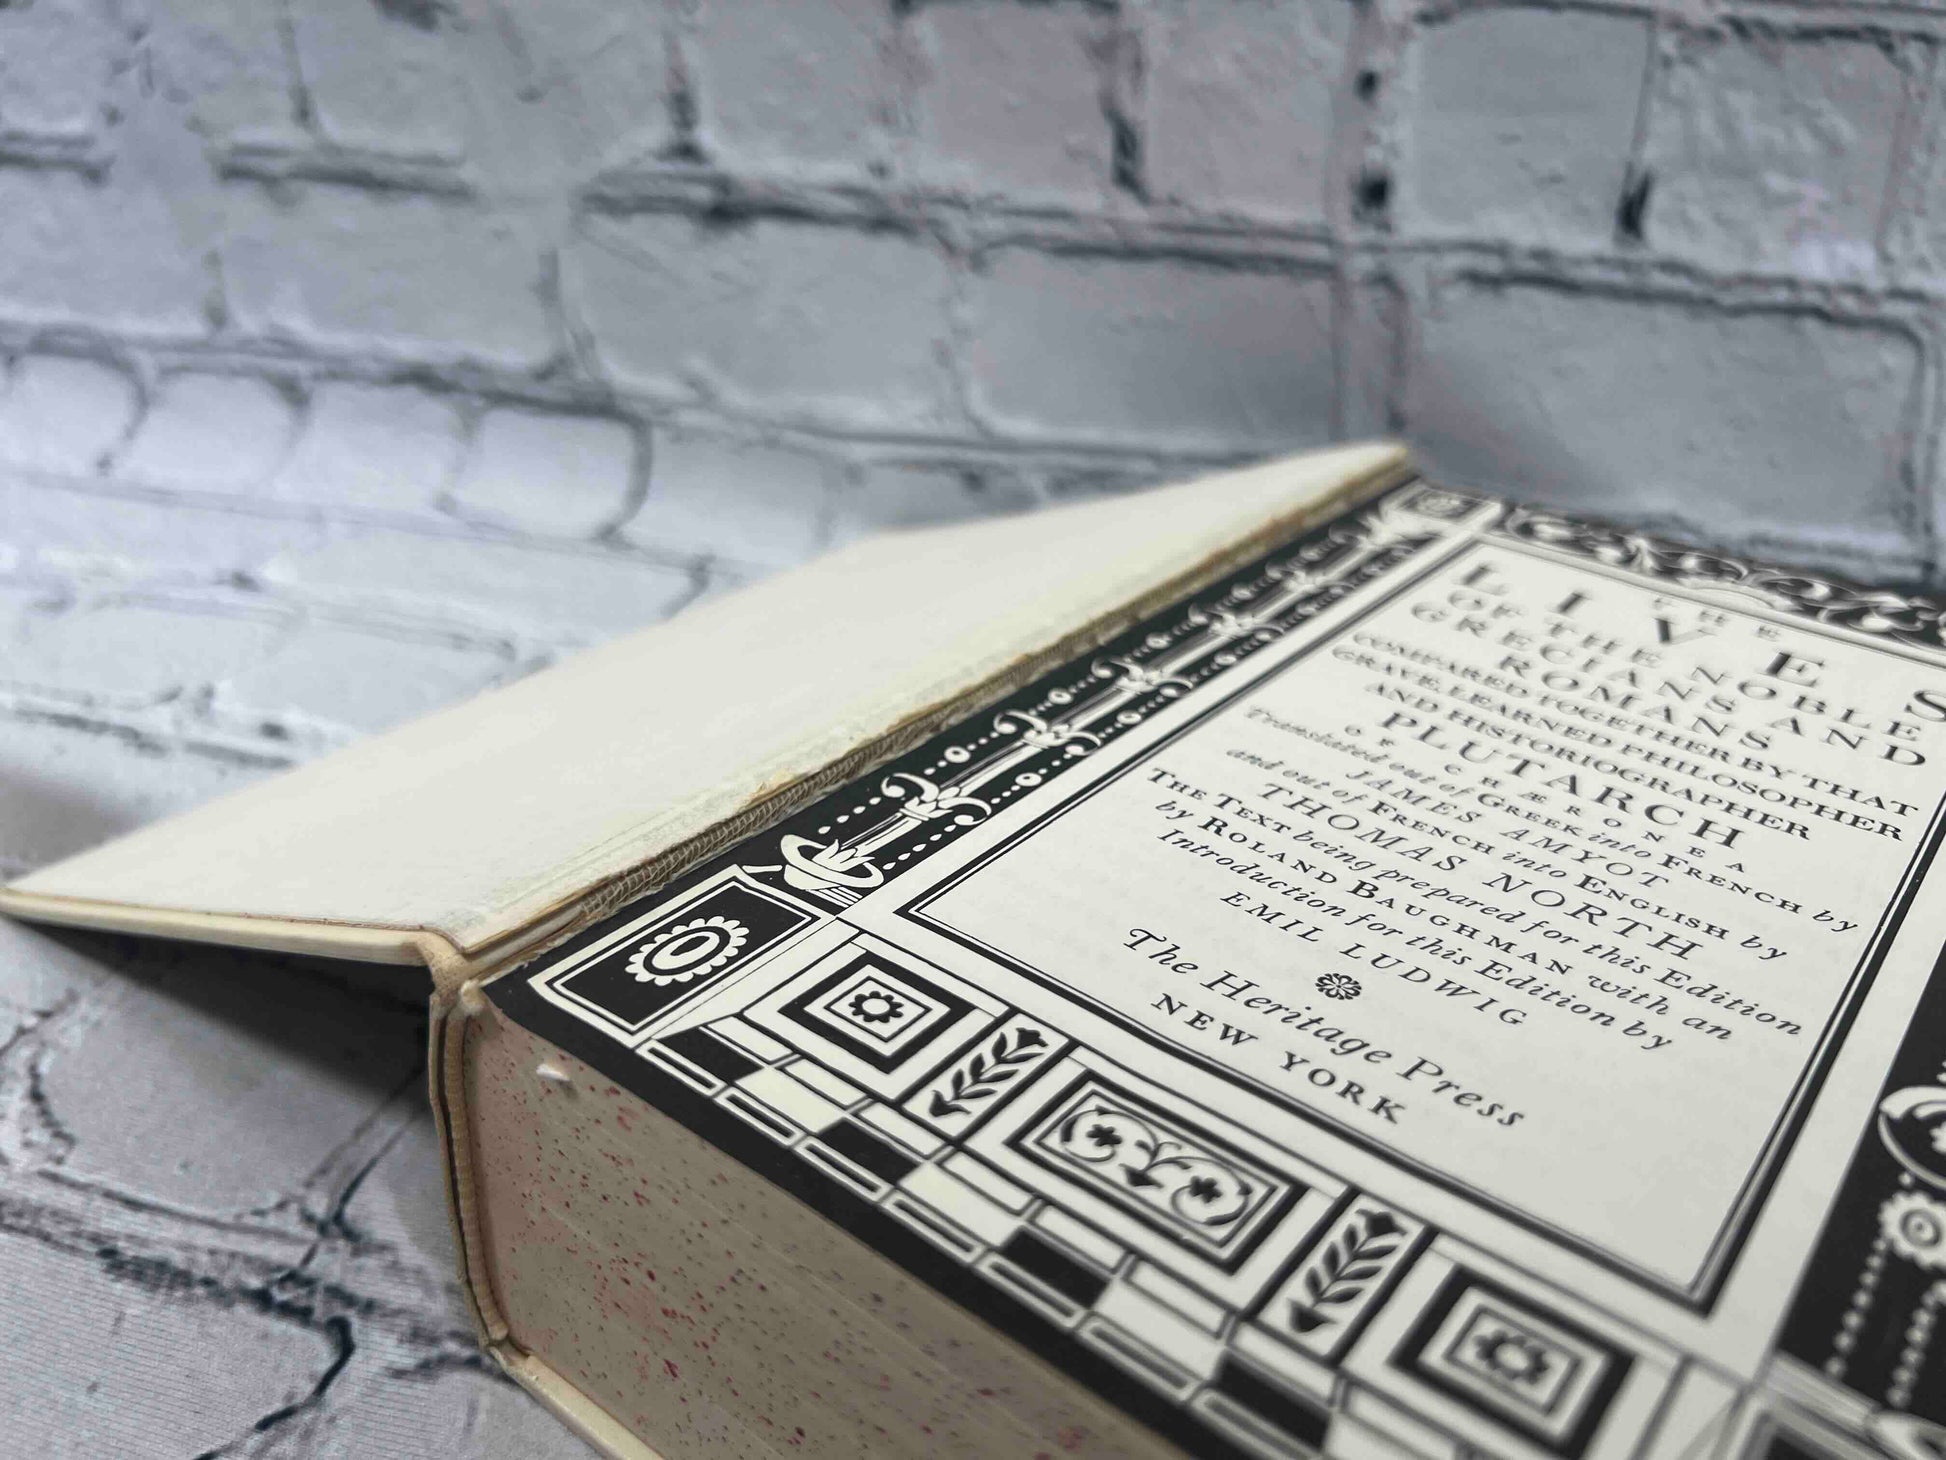 THE
LIVES
OF THE NOBLE
GRECIANS AND
ROMANS
COMPARED TOGETHER BY THAT
GRAVE, LEARNED PHILOSOPHER
AND HISTORIOGRAPHER
PLUTARCH
OF CHÆRONEA
Translated out of GREEK into FRENCH by
JAMES AMYOT
and out of FRENCH into ENGLISH by
THOMAS NORTH
THE TEXT being prepared for this Edition
by ROLAND BAUGHMAN with an
Introduction for this Edition by
EMIL LUDWIG
The Heritage Press
NEW YORK